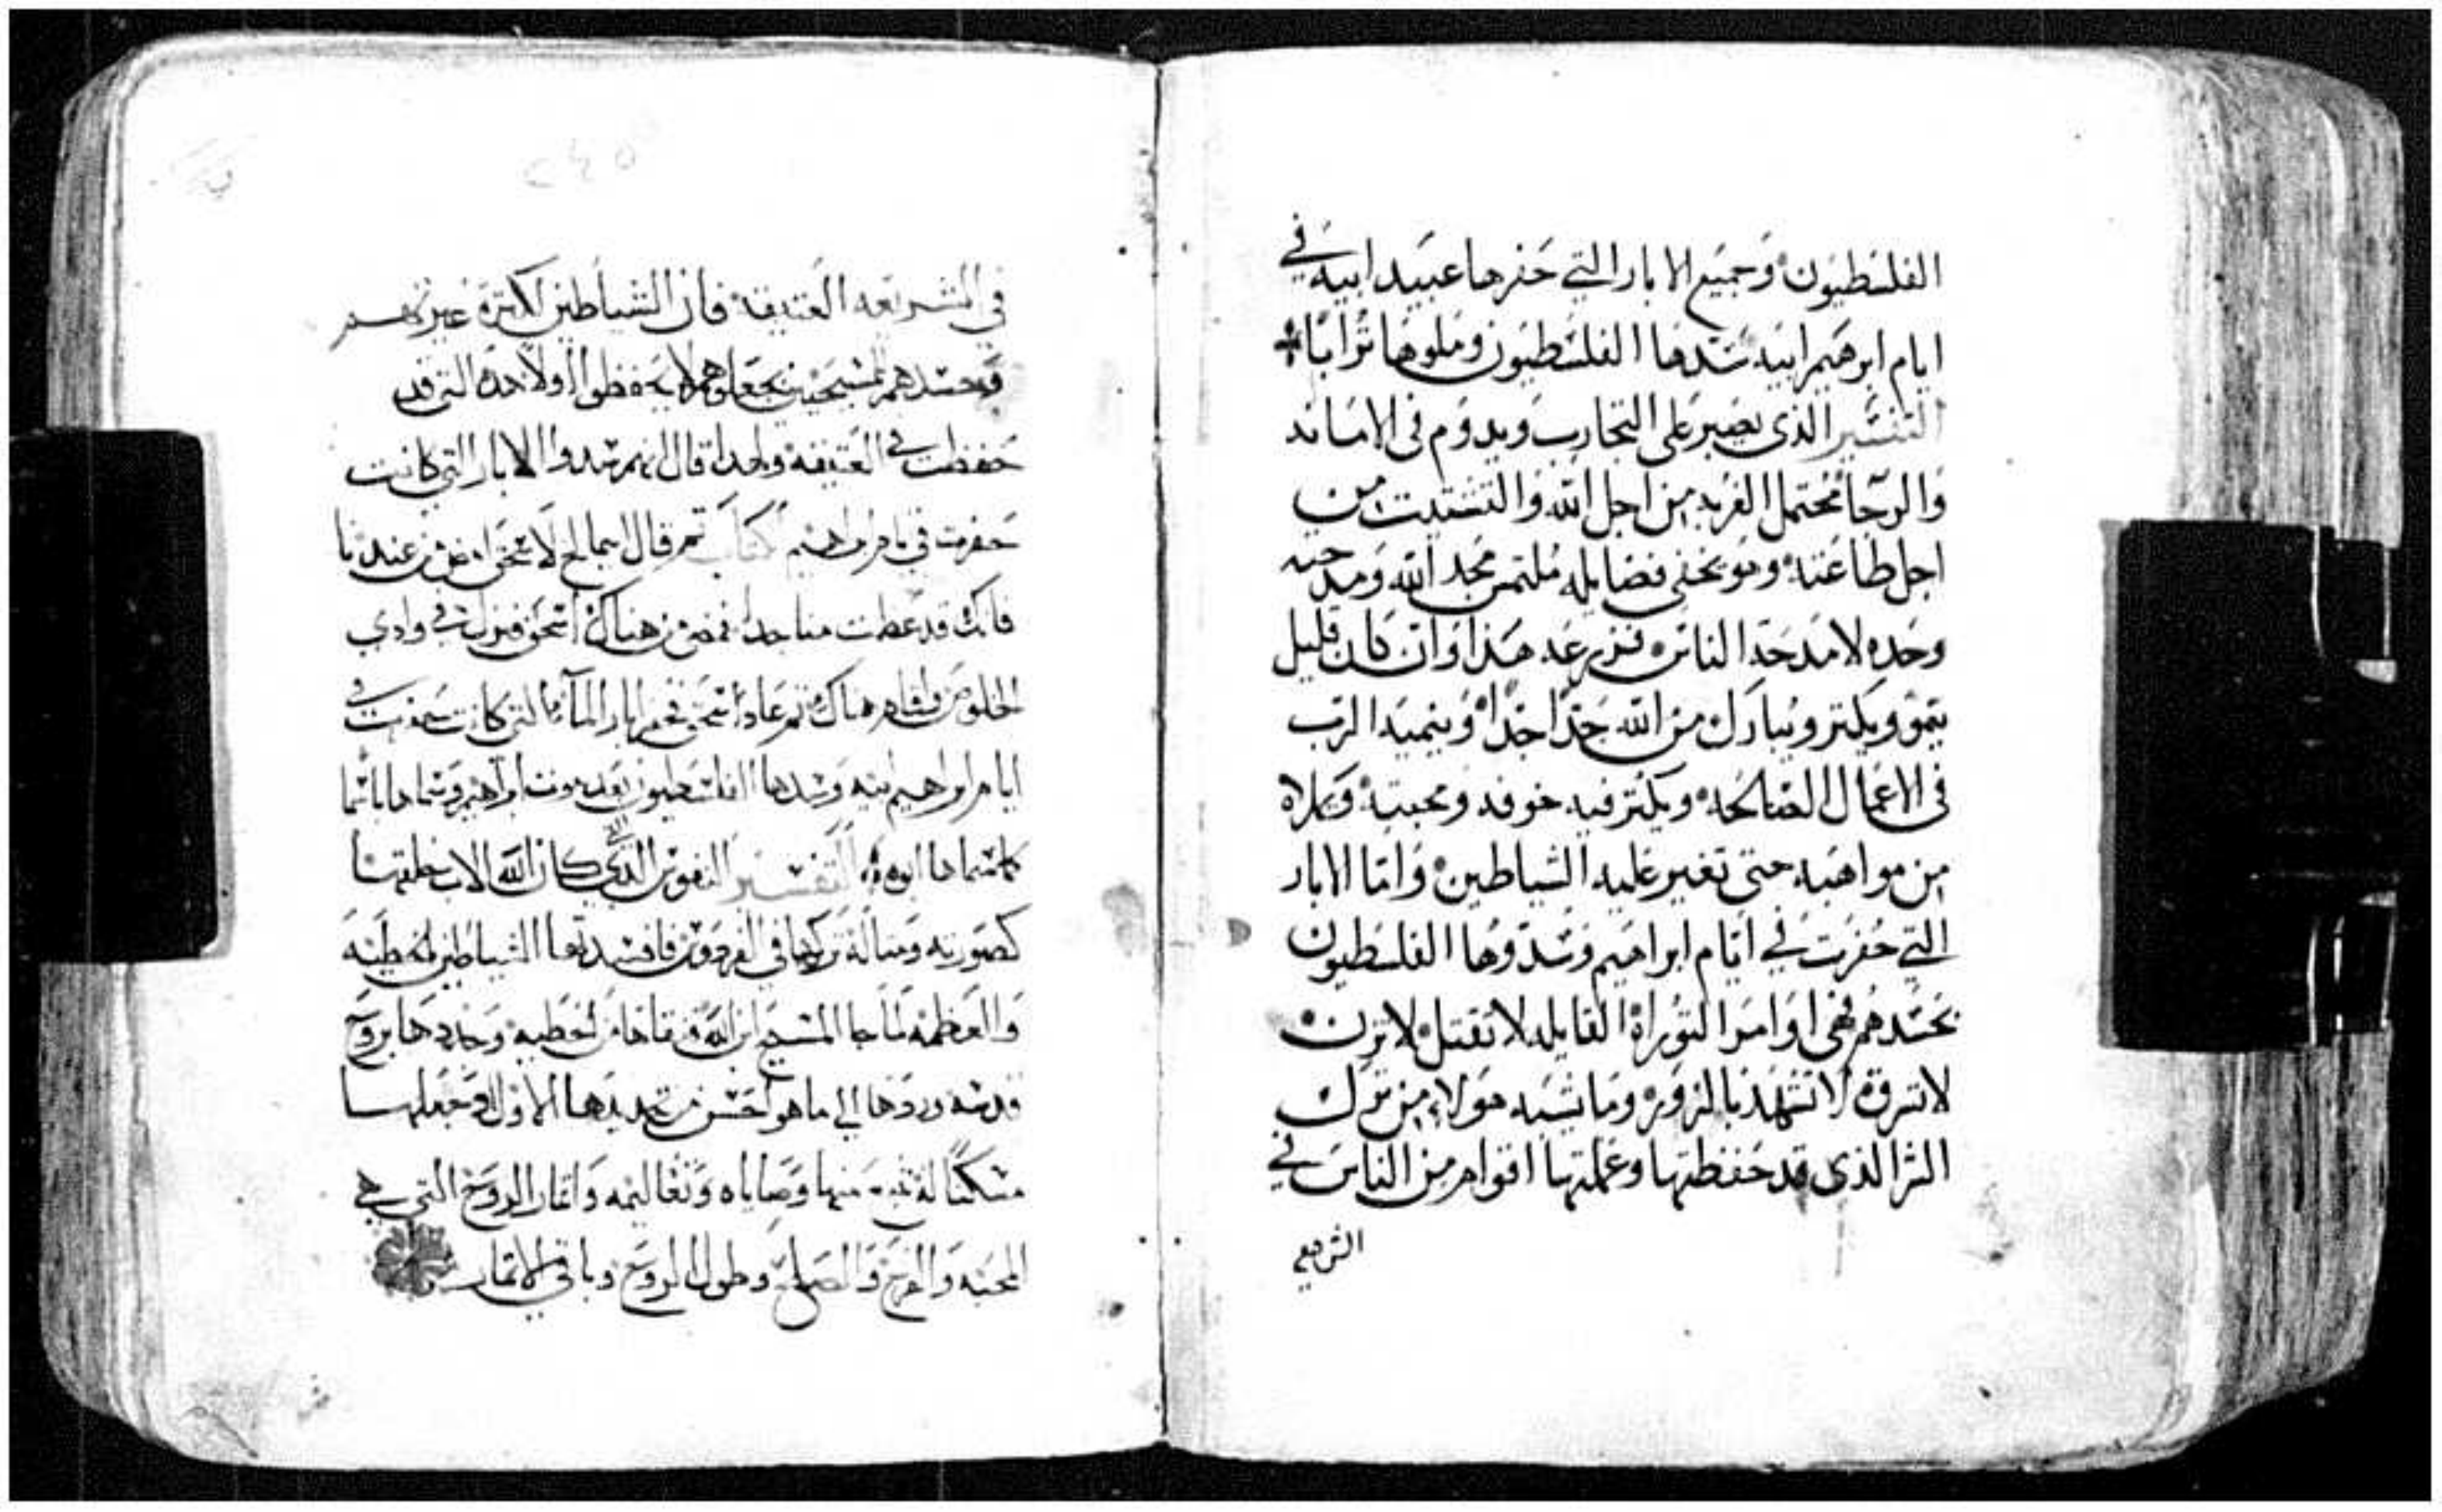 الفلسطيون وجميع الابار التي حفرها عبيد ابيه في
ايام ابرهيم ابيه سدها الفلسطيون وملوها ترابا
التفسير الذى يصبر على التجارب ويدوم فى الامانه
والرجا محتمل الغربه من اجل الله والتشتيت من
اجل طاعته وهو يخفى فضايله ملتمس مجد الله ومدحته
وحده لا مدحة الناس فزرعه هذا وان كان قليل
ينمو ويكتر ويبارك من الله جدا جدا وينميه الرب
فى الاعمال الصالحه ويكتر فيه خوفه ومحبته ويملاه
من مواهبه حتى تغير عليه الشياطين واما الابار
التي حفرت في ايام ابراهيم وسدوها الفلسطيون
بحسدهم فهى اوامر التوراة القايله لا تقتل لا تزن
لا تسرق لا تشهد بالزور وما يشبه هولاء من ترك
الشر الذى قد حفظتها وعملتها اقوام من الناس في
الشريعه
٢٤٥
في الشريعه العتيقه فان الشياطين لكترة غيرتهم
وحسدهم للمسيحيين يجعلوهم لا يحفظوا ولا هذه التى قد
حفظت في العتيقه ولهدا قال انهم سدوا الابار التي كانت
حفرت في ايام ابراهيم كتاب تم قال ابيمالخ لاسحق امض من عندنا
فانك قد عظمت منا جدا فمضى من هناك اسحق فنزل في وادي
الخلوص واقام هناك تم عاد اسحق فحفر ابار الماء التي كانت حفرت في
ايام ابراهيم ابيه وسدها الفلسطيون بعد موت ابراهيم وسماها باسما
كما سماها ابوه التفسير النفوس التي كان الله الاب خلقها
كصورته ومتاله تركها في الفردوس فافسدتها الشياطين بالخطيه
والعظمه لما جا المسيح ابن الله نقاها من الخطيه وجددها بروح
قدسه وردها الي ما هو احسن من تجديدها الاول وجعلها
مسكنا له منها وصاياه وتعاليمه واتمار الروح التي هي
المحبه والفرح والصلح وطول الروح وباقي الاتمار